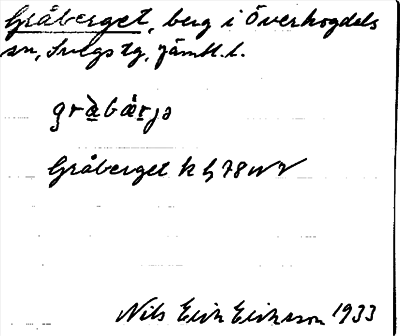 Gråberget, berg i Överhogdels
sn, Svegs tg, Jämtl. l.
grὰbὰrjə
Gråberget k G 78 NV
Nils Erik Eriksson 1933